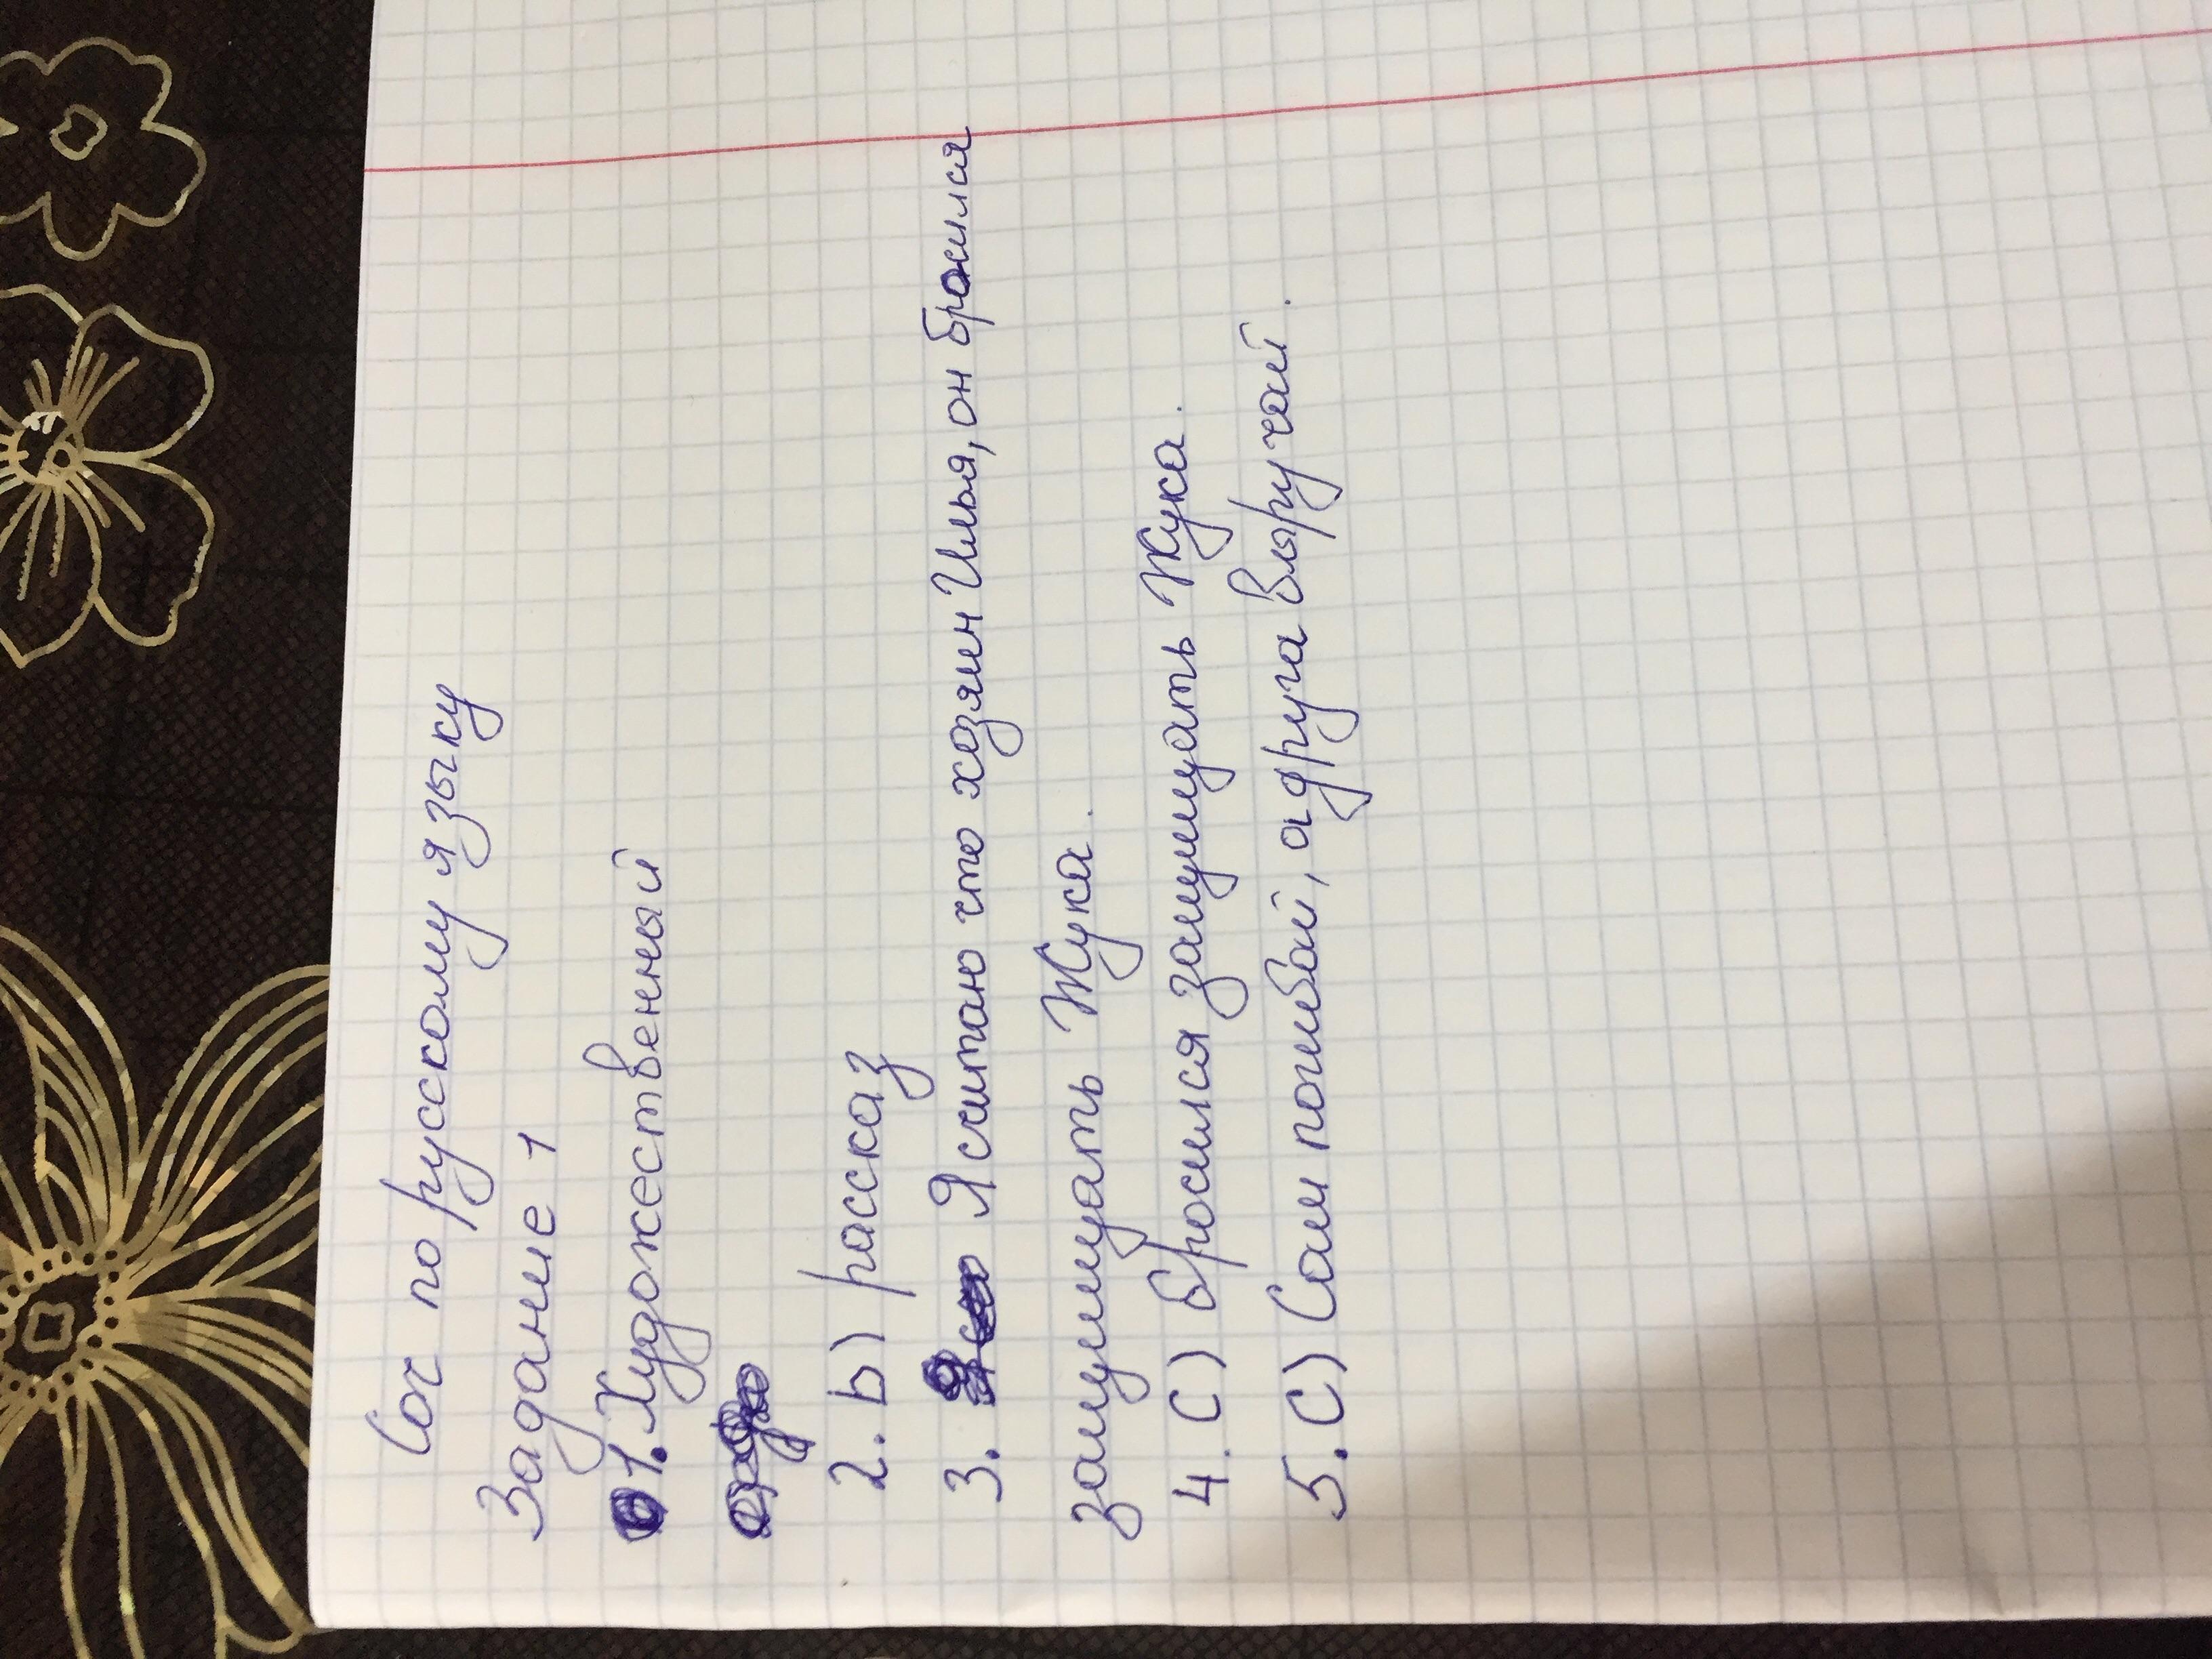 Соч по русскому языку
Задание 1
1. Художественный
2. b) рассказ
3. Я считаю что хозяин Илья, он бросился
защищать Жука.
4. C) бросился защищать Жука.
5. C) Сам погибай, а друга выручай.